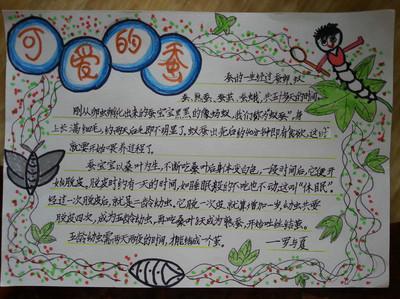 可爱的蚕
蚕的一生经过蚕卵、蚁
蚕、熟蚕、蚕茧、蚕蛾,共五十多天的时间。
刚从卵中孵化出来的蚕宝宝黑黑的像蚂蚁,我们称为"蚁蚕",身
上长满细毛,约两天后毛即不明显了,蚁蚕出壳后约40分钟即有食欲,这时
就要开始喂养过程了。
蚕宝宝以桑叶为生,不断吃桑叶后身体变白色,一段时间后,它便开
始脱皮,脱皮时约有一天的时间,如睡眠般的不吃也不动,这叫"休眠"。
经过一次脱皮后,就是二龄幼虫。它脱一次皮就算增加一岁,幼虫共要
脱皮四次,成为五龄幼虫,再吃桑叶8天成为熟蚕,开始吐丝结茧。
五龄幼虫需两天两夜的时间,才能结成一个茧。